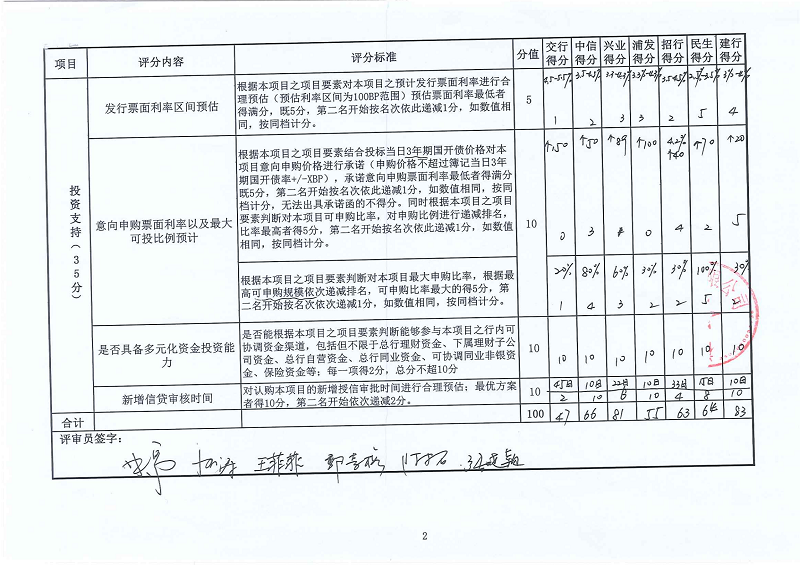 项目 评分内容 评分标准 分值 交行 中信 兴业 浦发 招行 民生 建行
得分 得分 得分 得分 得分 得分 得分
投资支持（35分）
发行票面利率区间预估
根据本项目之项目要素对本项目之预计发行票面利率进行合
理预估（预估利率区间为100BP范围）预估票面利率最低者
得满分，既5分，第二名开始按名次依此递减1分，如数值相
同，按同档计分。
5
1 2 3 3 2 5 4
意向申购票面利率以及最大
可投比例预计
根据本项目之项目要素结合投标当日3年期国开债价格对本
项目意向申购价格进行承诺（申购价格不超过簿记当日3年
期国开债率+/-XBP），承诺意向申购票面利率最低者得满分
既5分，第二名开始按名次依此递减1分，如数值相同，按同
档计分，无法出具承诺函的不得分。同时根据本项目之项目
要素判断对本项目可申购比率，对申购比例进行递减排名，
比率最高者得5分，第二名开始按名次依此递减1分，如数值
相同，按同档计分。
10
↑150 ↑50 ↑89 ↑100 4.2% ↑70 ↑20
↑40
0 3 0 4 2 5
根据本项目之项目要素判断对本项目最大申购比率，根据最
高可申购规模依次递减排名，可申购比率最大的得5分，第
二名开始按名次依次递减1分，如数值相同，按同档计分。
20% 80% 60% 30% 30% 100% 30%
1 4 3 2 2 5 2
是否具备多元化资金投资能
力
是否能根据本项目之项目要素判断能够参与本项目之行内可
协调资金渠道，包括但不限于总行理财资金、下属理财子公
司资金、总行自营资金、总行同业资金、可协调同业非银资
金、保险资金等；每一项得2分，总分不超10分
10
10 10 10 10 10 10 10
新增信贷审核时间
对认购本项目的新增授信审批时间进行合理预估；最优方案
者得10分，第二名开始依次递减2分。
10
45日 10日 22日 10日 33日 15日 10日
2 10 6 10 4 8 10
合计 100 47 66 81 55 63 64 83
评审员签字：
王菲菲
2